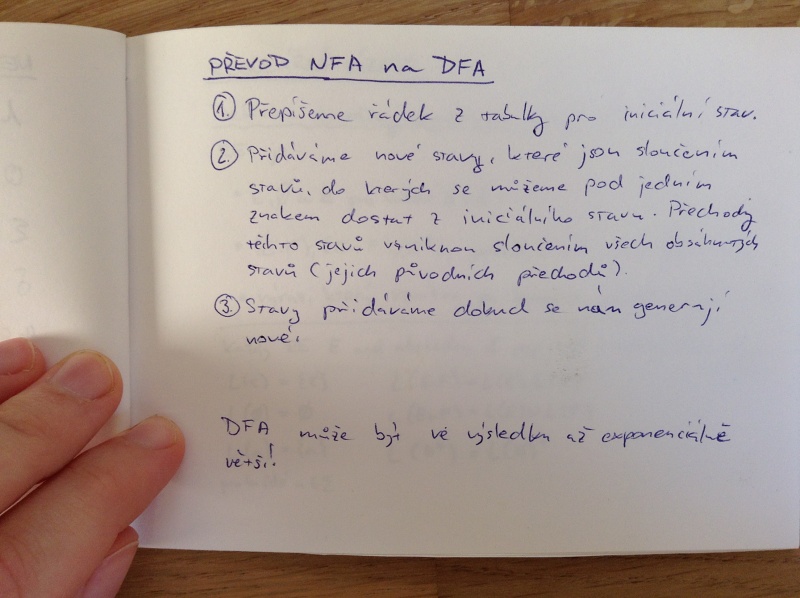 PŘEVOD NFA na DFA
1. Přepíšeme řádek z tabulky pro iniciální stav.
2. Přidáváme nové stavy, které jsou sloučením
stavů, do kterých se můžeme pod jedním
znakem dostat z iniciálního stavu. Přechody
těchto stavů vzniknou sloučením všech obsáhnutých
stavů (jejich původních přechodů).
3. Stavy přidáváme dokud se nám generují
nové.
DFA může být ve výsledku až exponenciálně
větší!